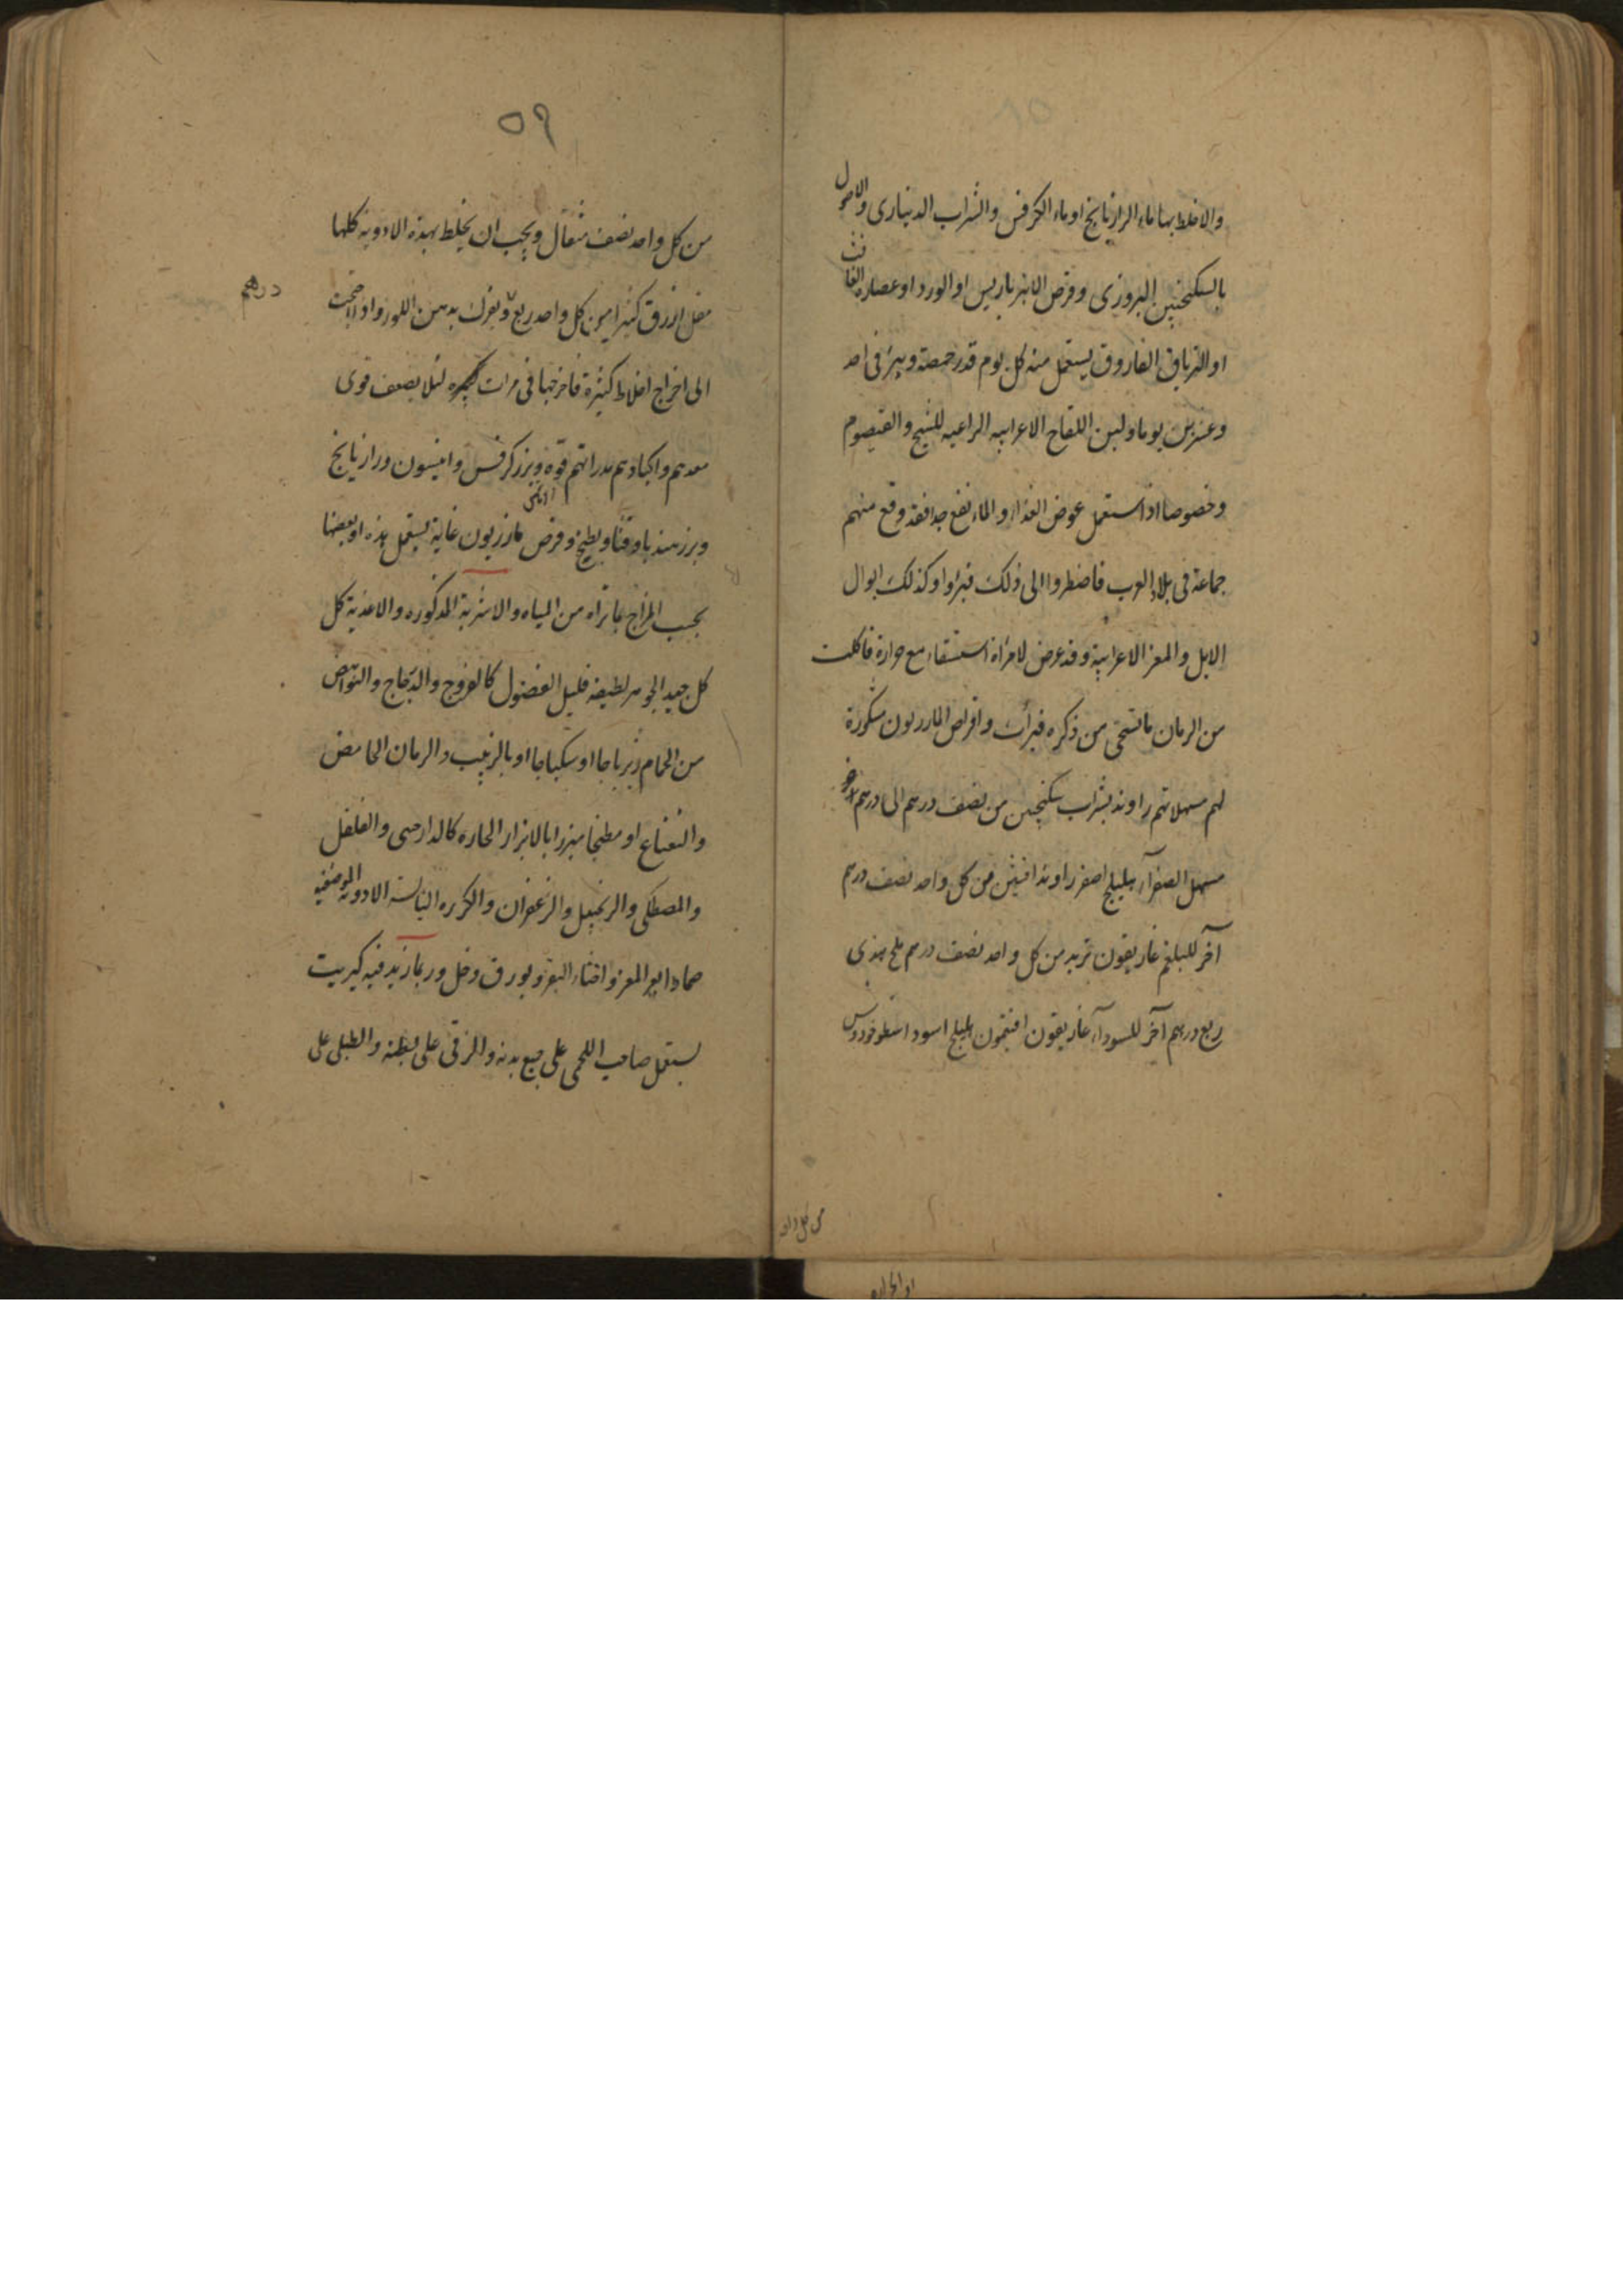 والا خلط بها ماء الرازيانج او ماء الكرفس والشراب الدينارى والاصول
بالسكنجبين البزورى وقرص الانبرباريس او الورد او عصاره الغافث
او الترياق الفاروق يستعمل منه كل يوم قدر حمصة ويبرئ فى احد
وعشرين يوما ولبن اللقاح الاعرابيه الراعيه للشيح والقيصوم
وخصوصا اذا استعمل عوض الغذاء والماء نفع جدا فقد وقع منهم
جماعة فى بلاد العرب فاضطروا الى ذلك فبرؤا وكذلك ابوال
الابل والمعز الاعرابية وقد عرض لامراة استسقاء مع حرارة فاكلت
من الرمان ما تستحى من ذكره فبرأت واقراص المازريون مشكورة
لهم مسهلاتهم راوند بشراب سكنجبين من نصف درهم الى درهم آخر
مسهل الصفرآء هليلج اصفر راوند افسنتين من كل واحد نصف درهم
آخر للبلغم غاريقون تربد من كل واحد نصف درهم ملح هندى
ربع درهم آخر للسودآء غاريقون افتيمون هليلج اسود اسطوخودوس
من كل واحد
٥٩
من كل واحد نصف مثقال ويجب ان يخلط بهذه الادوية كلها
مقل ازرق كثيرا من كل واحد ربع ويفرك بدهن اللوز واذا احتجت
درهم
الى اخراج اخلاط كثيرة فاخرجها فى مرات كثيره لئلا يضعف قوى
معدهم واكبادهم مدراتهم قوة وبزر كرفس وانيسون ورازيانج
وبزر هندبا وقثا وبطيخ وقرص مازريون غاية يستعمل هذه او بعضها
بحسب المزاج بما تراه من المياه والاشربة المذكوره والاغذية كل
كل جيد الجوهر لطيفه قليل الفضول كالفروج والدجاج والنواهض
من الحمام زيرباجا او سكباجا او بالزبيب والرمان الحامض
والنعناع او مطجنا مبزرا بالابزار الحاره كالدارصينى والفلفل
والمصطكى والزنجبيل والزعفران والكزبره اليابسة الادوية الموضعيه
ضمادا بعر المعز واخثاء البقر وبورق وخل وربما زيد فيه كبريت
يستعمل صاحب اللحمى على جميع بدنه والزقى على بطنه والطبلى على